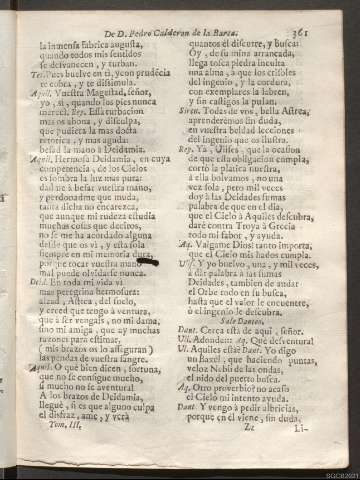 De D. Pedro Calderon de la Barca. 361
la inmensa fabrica augusta,
quando todos mis sentidos
se desvanecen, y turban.
Tet. Pues buelve en ti, y con prudẽcia
te cobra, y te dissimula.
Aquil. Vuestra Magestad, señor,
yo, si, quando los pies nunca
mereci. Rey. Essa turbacion
mas os abona, y disculpa,
que pudiera la mas docta
retorica, y mas aguda:
besad la mano à Deidamia.
Aquil. Hermosa Deidamia, en cuya
competencia, de los Cielos
es sombra la luz mas pura:
dad me à besar vuestra mano,
y perdonadme que muda,
tanta dicha no encarezca,
que aunque mi rudeza estudia
muchas cosas que deciros,
no se me ha acordado alguna
desde que os vi, y esta sola
siempre en mi memoria dura,
porque tocar vuestra mano
mal puede olvidarse nunca.
Deid. En toda mi vida vi
mas peregrina hermosura:
alzad, Astrea, del suelo,
y creed que tengo à ventura,
que à ser vengais, no mi dama,
sino mi amiga, que ay muchas
razones para estimar,
y mis brazos os lo asseguran
las prendas de vuestra sangre.
Aquil. O què bien dicen, fortuna,
que no se consigue mucho,
si mucho no se aventura!
A los brazos de Deidamia,
lleguè, si es que alguno culpa
el disfraz, ame, y verà
Tom. III.
quantos èl discurre, y busca:
Oy, de su mina arrancada,
llega tosca piedra inculta
una alma, à que los crisoles
del ingenio, y la cordura,
con exemplares la labren,
y sin castigos la pulan.
Siren. Todas de vos, bella Astrea,
aprenderemos sin duda,
en vuestra beldad lecciones
del ingenio que os ilustra.
Rey. Ya, Ulises, que la ocasion
de que esta obligacion cumpla,
cortò la platica nuestra,
à ella bolvamos, no una
vez sola, pero mil veces
doy à las Deidades sumas
palabra de que en el dia,
que el Cielo à Aquiles descubra,
darè contra Troya à Grecia
todo mi favor, y ayuda.
Aq. Valgame Dios! tanto importa,
que el Cielo mis hados cumpla.
Ulis. Y yo buelvo, una, y mil veces,
à dàr palabra à las sumas
Deidades, tambien de andar
el Orbe todo en su busca,
hasta que el valor le encuentre,
ò el ingenio le descubra.
Sale Danteo.
Dant. Cerca està de aqui, señor.
Ul. Adonde? Aq. Què desventura!
Ul. Aquiles està? Dant. Yo digo
un Baxèl, que haciendo puntas,
veloz Neblì de las ondas,
el nido del puerto busca.
Aq. Otro proverbio? no acaso
el Cielo mi intento ayuda.
Dant. Y vengo à pedir albricias,
porque en èl viene, sin duda,
Zz Li-
SGCB2021